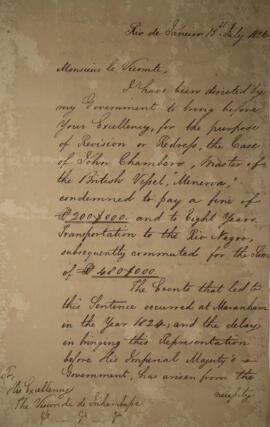 Rio de Janeiro 13th July 1826
Monsieur le Vicomte,
I have been directed by
my Government to bring before
Your Excellency, for the purpose
of Revision or Redress, the Case
of John Chambers, Master of
the British Vessel, "Minerva,"
condemned to pay a fine of
200$000. and to Eight Years
Transportation to the Rio Negro,
subsequently commuted for the Sum
of 480$000.
The Events that led to
this Sentence occurred at Maranham
in the Year 1824; and the delays
in bringing this Representation
before His Imperial Majesty's
Government, has arisen from the
necessity
His Excellency
The Viscount de Inhambupe